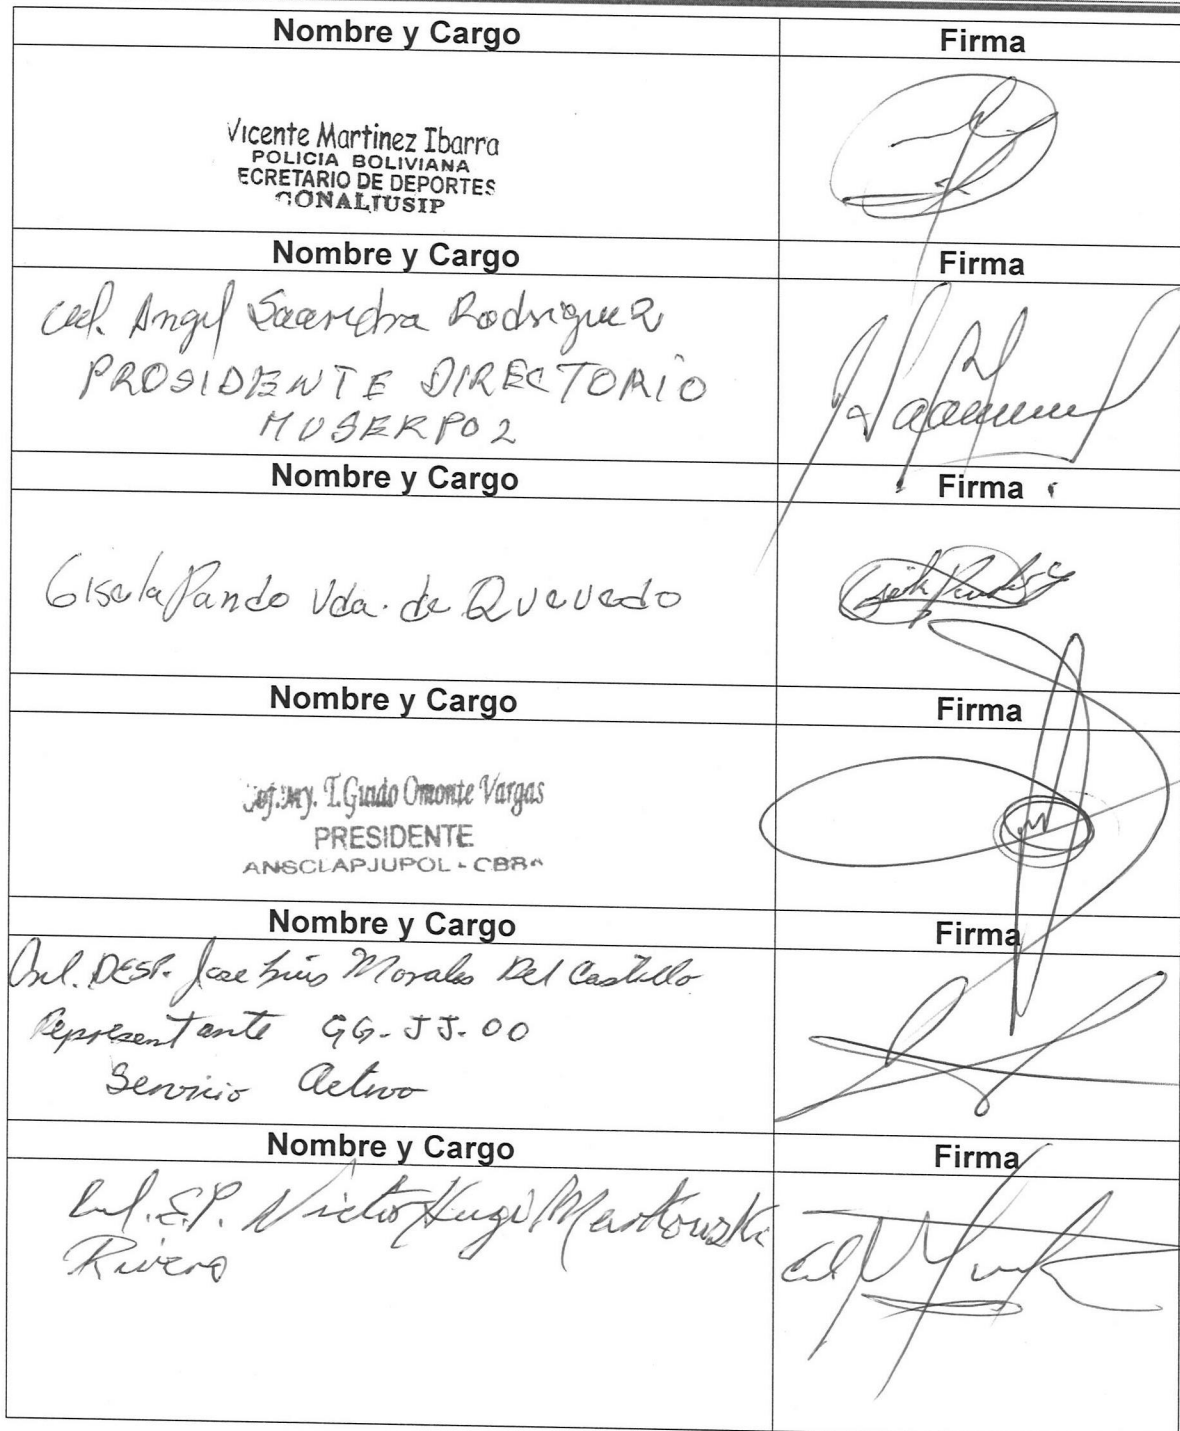 Nombre y Cargo Firma
Vicente Martinez Ibarra
POLICIA BOLIVIANA
ECRETARIO DE DEPORTES
CONALJUSIP
Nombre y Cargo Firma
Angel Saavedra Rodriguez
PRESIDENTE DIRECTORIO
MUSERPOL
Nombre y Cargo Firma
Gisela Pando Vda. de Quevedo
Nombre y Cargo Firma
Sof. My. T. Guido Omonte Vargas
PRESIDENTE
ANSCLAPJUPOL - CBBA
Nombre y Cargo Firma
Cnl. DESP. Jose Luis Morales Del Castillo
Representante GG. JJ. OO
Servicio Activo
Nombre y Cargo Firma
E.P. Victor Hugo Markowski
Rivero